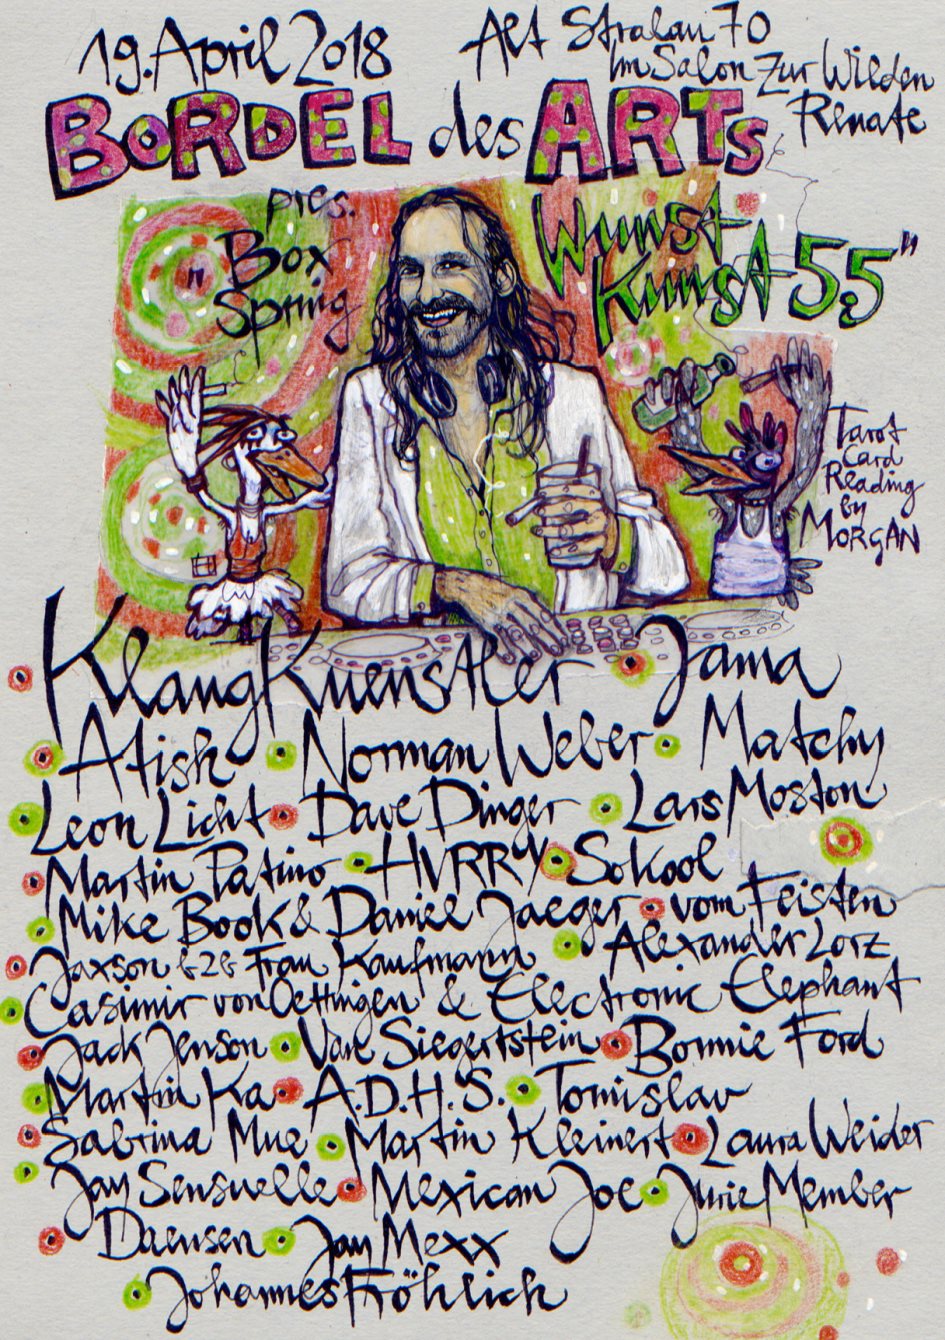 19. April 2018
Alt Stralau 70
Im Salon Zur Wilden
Renate
BORDEL des ARTS
pres.
"Box
Spring
Wunst
Kunst 5.5"
Tarot
Card
Reading
by
MORGAN
KlangKuenstler Jama
Atish Norman Weber Matchy
Leon Licht Dave Dinger Lars Moston
Martin Patino HVRRY Sokool
Mike Book & Daniel Jaeger vom Feisten
Jaxson b2b Frau Kaufmann Alexander Lorz
Casimir von Oettingen & Electronic Elephant
Jack Jenson Varl Siegertstein Bonnie Ford
Martin Ka A.D.H.S. Tomislav
Sabrina Mue Martin Kleinert Laura Weider
Jay Sensuelle Mexican Joe Jurie Member
Daensen Jay Mexx
Johannes Fröhlich